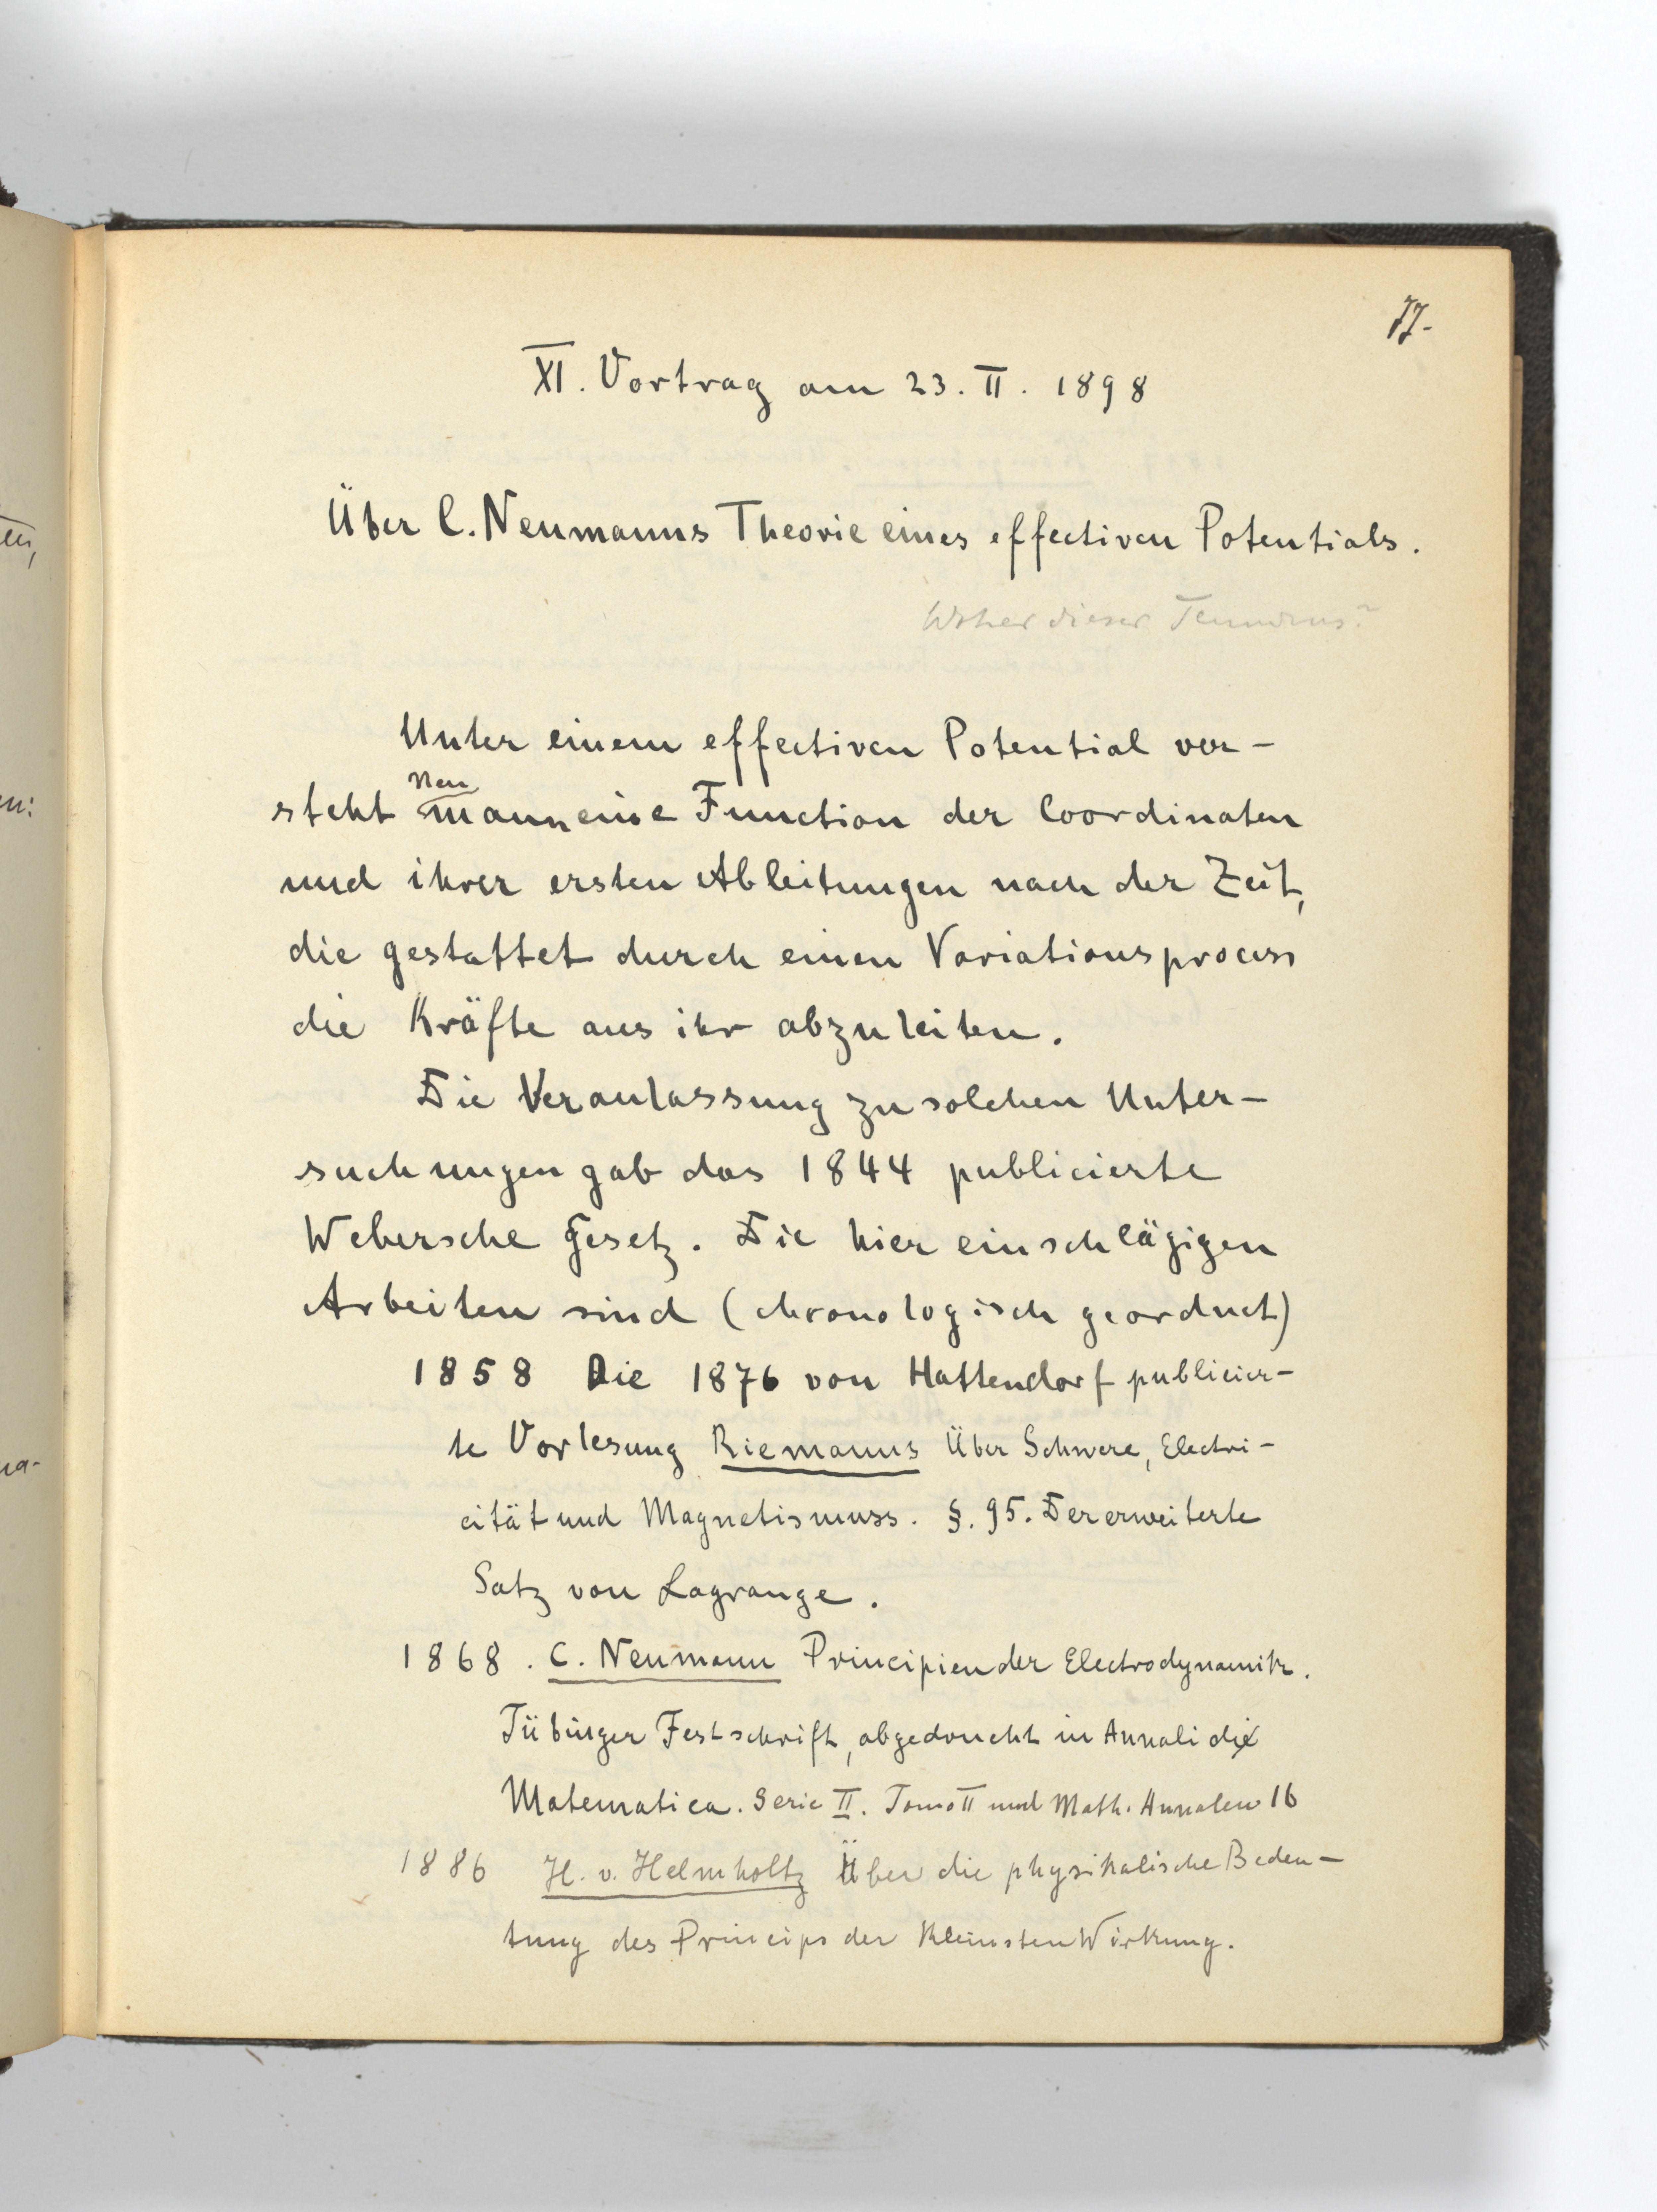 77.
XI. Vortrag am 23. II. 1898
Über C. Neumanns Theorie eines effectiven Potentials.
Woher dieser Terminus?
Unter einem effectiven Potential ver-
Neu
steht mann eine Function der Coordinaten
und ihrer ersten Ableitungen nach der Zeit,
die gestattet durch einen Variationsprocess
die Kräfte aus ihr abzuleiten.
Die Veranlassung zu solchen Unter-
suchungen gab das 1844 publicierte
Webersche Gesetz. Die hier einschlägigen
Arbeiten sind (chronologisch geordnet)
1858 Die 1876 von Hattendorf publicier-
te Vorlesung Riemanns Über Schwere, Electri-
cität und Magnetismuss. §. 95. Der erweiterte
Satz von Lagrange.
1868. C. Neumann Principien der Electrodynamik.
Tübinger Festschrift, abgedruckt in Annali di
Matematica. Serie II. Tomo II und Math. Annalen 16
1886 H. v. Helmholtz Über die physikalische Bedeu-
tung des Princips der kleinsten Wirkung.